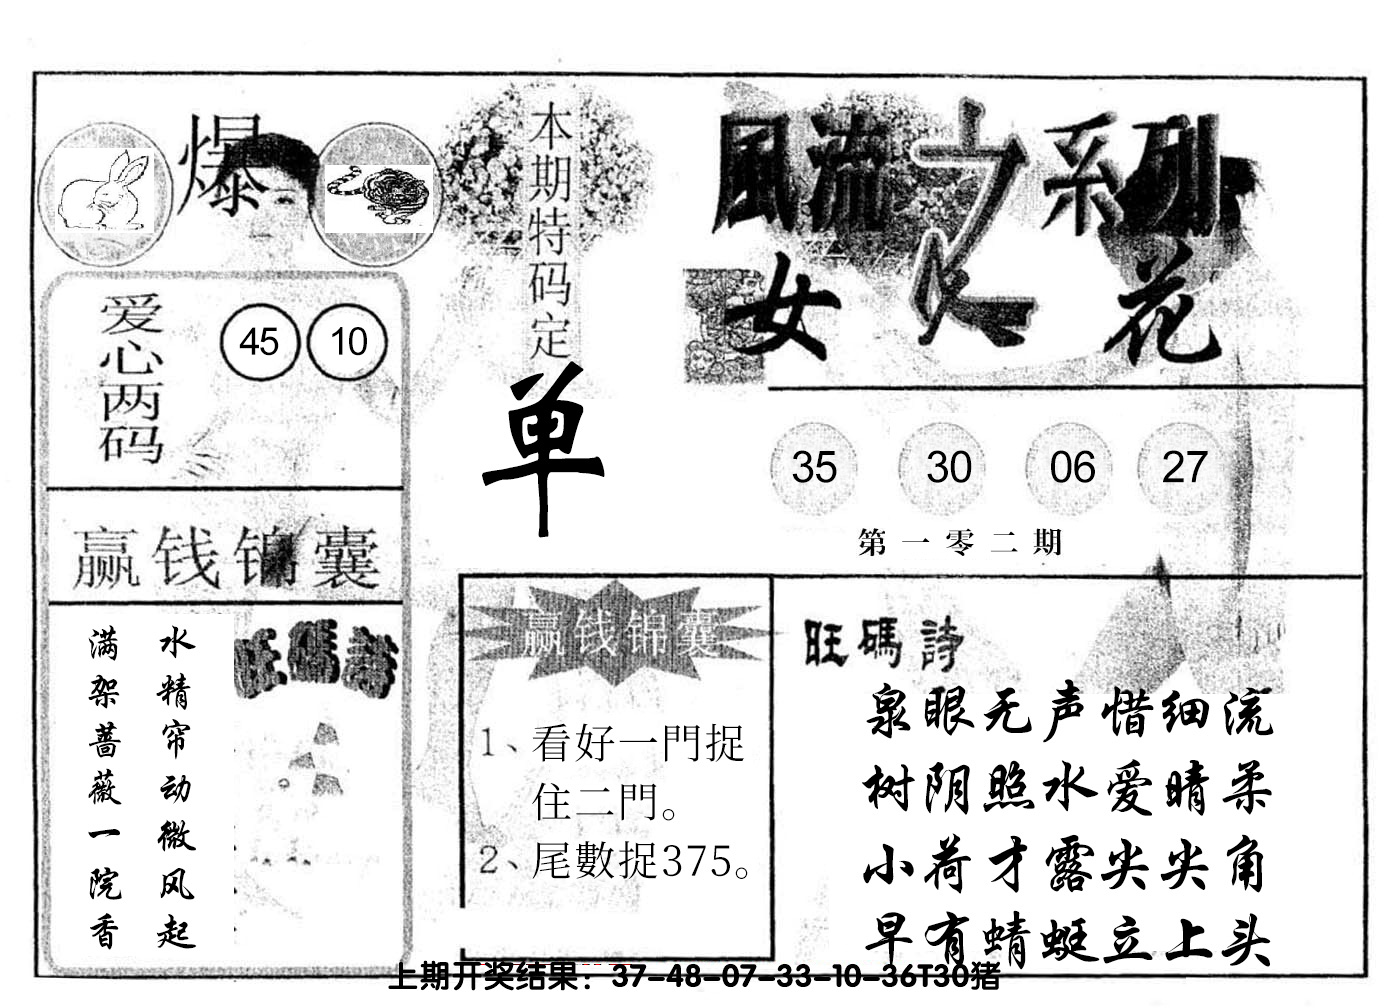 爆
本期特码定
单
風流之系列
女人花
爱心两码
45 10
35 30 06 27
第一零二期
赢钱锦囊
水精帘动微风起
满架蔷薇一院香
旺碼詩
赢钱锦囊
1、看好一門捉
住二門。
2、尾數捉375。
旺碼詩
泉眼无声惜细流
树阴照水爱晴柔
小荷才露尖尖角
早有蜻蜓立上头
上期开奖结果：37-48-07-33-10-36T30猪